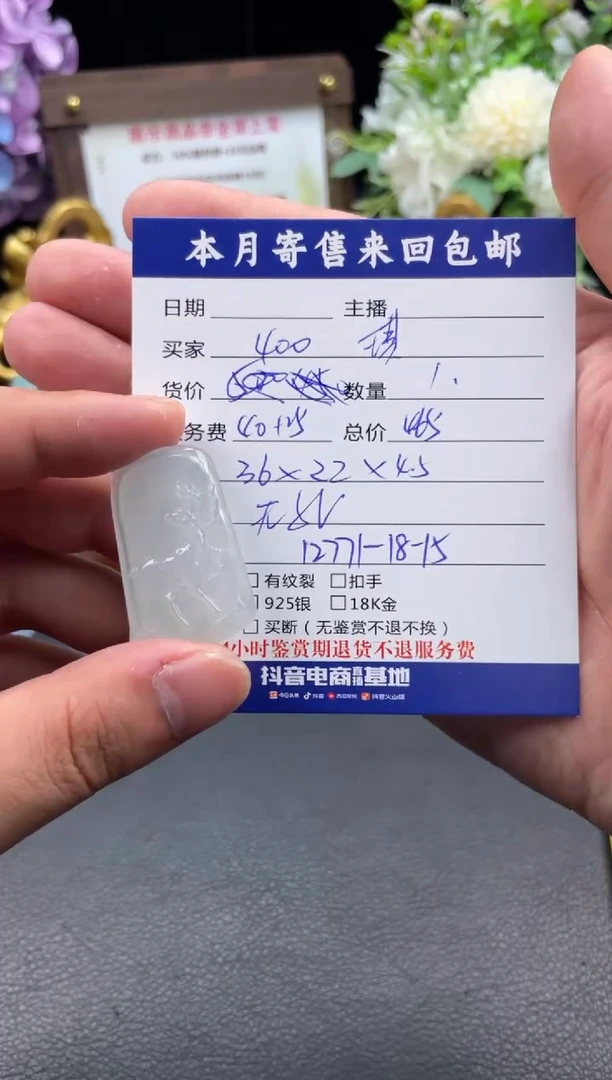 本月寄售来回包邮
日期 主播
买家 400
货价 数量 1.
务费 40+25 总价 465
36×22×4.5
无
12771-18-15
□有纹裂 □扣手
925银 □18K金
□买断(无鉴赏不退不换)
小时鉴赏期退货不退服务费
抖音电商直播基地
今日头条 抖音 西瓜视频 抖音火山版